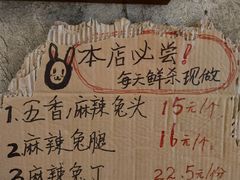 本店必尝!
每天鲜杀现做
1.五香/麻辣兔头 15元/个
2麻辣兔腿 16元/个
3麻辣兔丁 22.5元/份